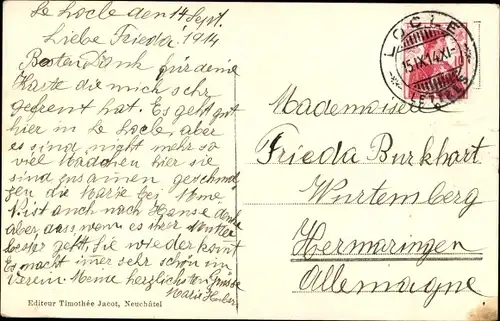 Le Locle den 14 Sept.
1914
Liebe Frieda
Besten Dank für deine
Karte die mich sehr
gefreut hat. Es geht gut
hier in Le Locle, aber
es sind nicht mehr so
viel Mädchen hier sie
sind zusammen
gen die Marie bei
ist auch nach Hause
aber, dass wenn es ihrer Mutter
besser geht Sie wieder kommt
Es macht immer sehr schön im
Verein. Meine herzlichsten Grüsse
Marie
Editeur Timothée Jacot, Neuchâtel
LOCLE
15.IX.14.XI-
LETTRES
Mademoiselle
Frieda Burkhart
Wurtemberg
Hermaringen
Allemagne